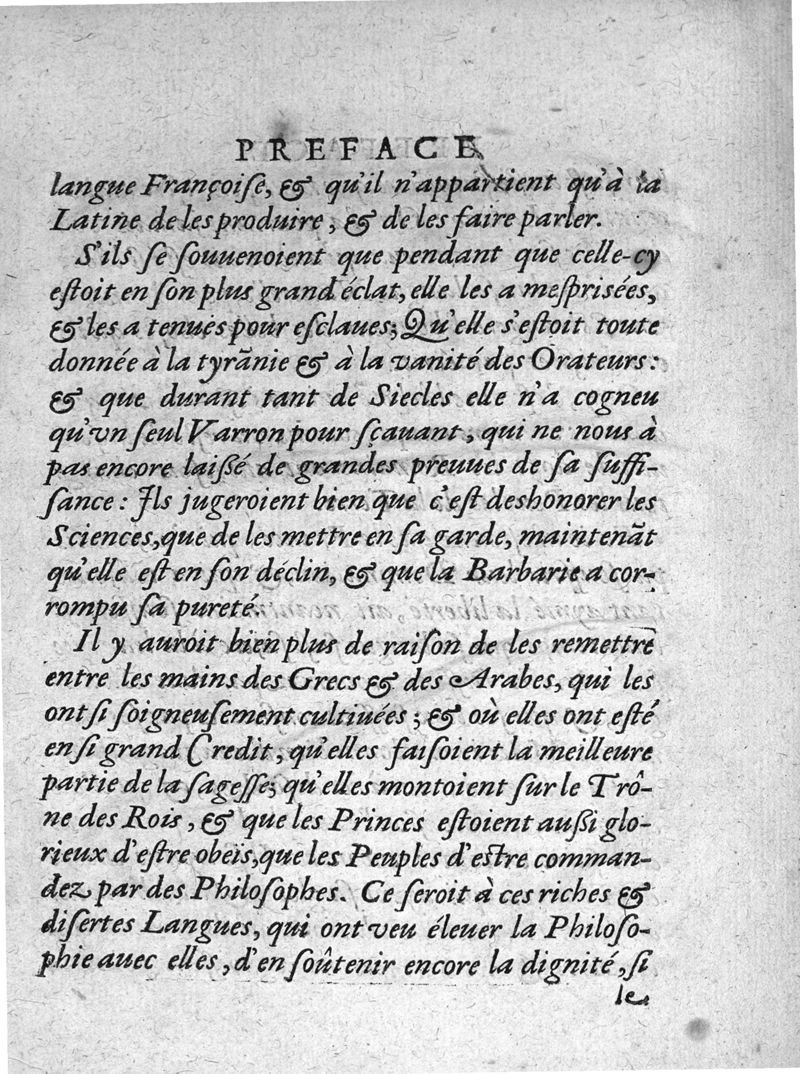 PREFACE
langue Françoiſe, & qu'il n'appartient qu'à la
Latine de les produire, & de les faire parler.
S'ils ſe ſouuenoient que pendant que celle-cy
eſtoit en ſon plus grand éclat, elle les a meſpriſées,
& les a tenues pour eſclaues; Qu'elle s'eſtoit toute
donnée à la tyrãnie & à la vanité des Orateurs:
& que durant tant de Siecles elle n'a cogneu
qu'vn ſeul Varron pour ſçauant, qui ne nous à
pas encore laißé de grandes preuues de ſa ſuffi-
ſance: Ils jugeroient bien que c'eſt deshonorer les
Sciences, que de les mettre en ſa garde, maintenãt
qu'elle eſt en ſon déclin, & que la Barbarie a cor-
rompu ſa pureté.
Il y auroit bien plus de raiſon de les remettre
entre les mains des Grecs & des Arabes, qui les
ont ſi ſoigneuſement cultiuées; & où elles ont eſté
en ſi grand Credit, qu'elles faiſoient la meilleure
partie de la ſageſſe; qu'elles montoient ſur le Trô-
ne des Rois, & que les Princes eſtoient außi glo-
rieux d'eſtre obeïs, que les Peuples d'eſtre comman-
dez par des Philoſophes. Ce ſeroit à ces riches &
diſertes Langues, qui ont veu éleuer la Philoſo-
phie auec elles, d'en ſoûtenir encore la dignité, ſi
le